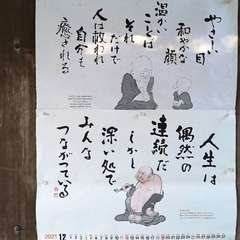 やさしい目
和やかな顔
温かい
ことば
それ
だけで
人は救われ
自分も
癒される
人生は
偶然の
連続だ
しかし
深い処で
みんな
つながっている
2021 12